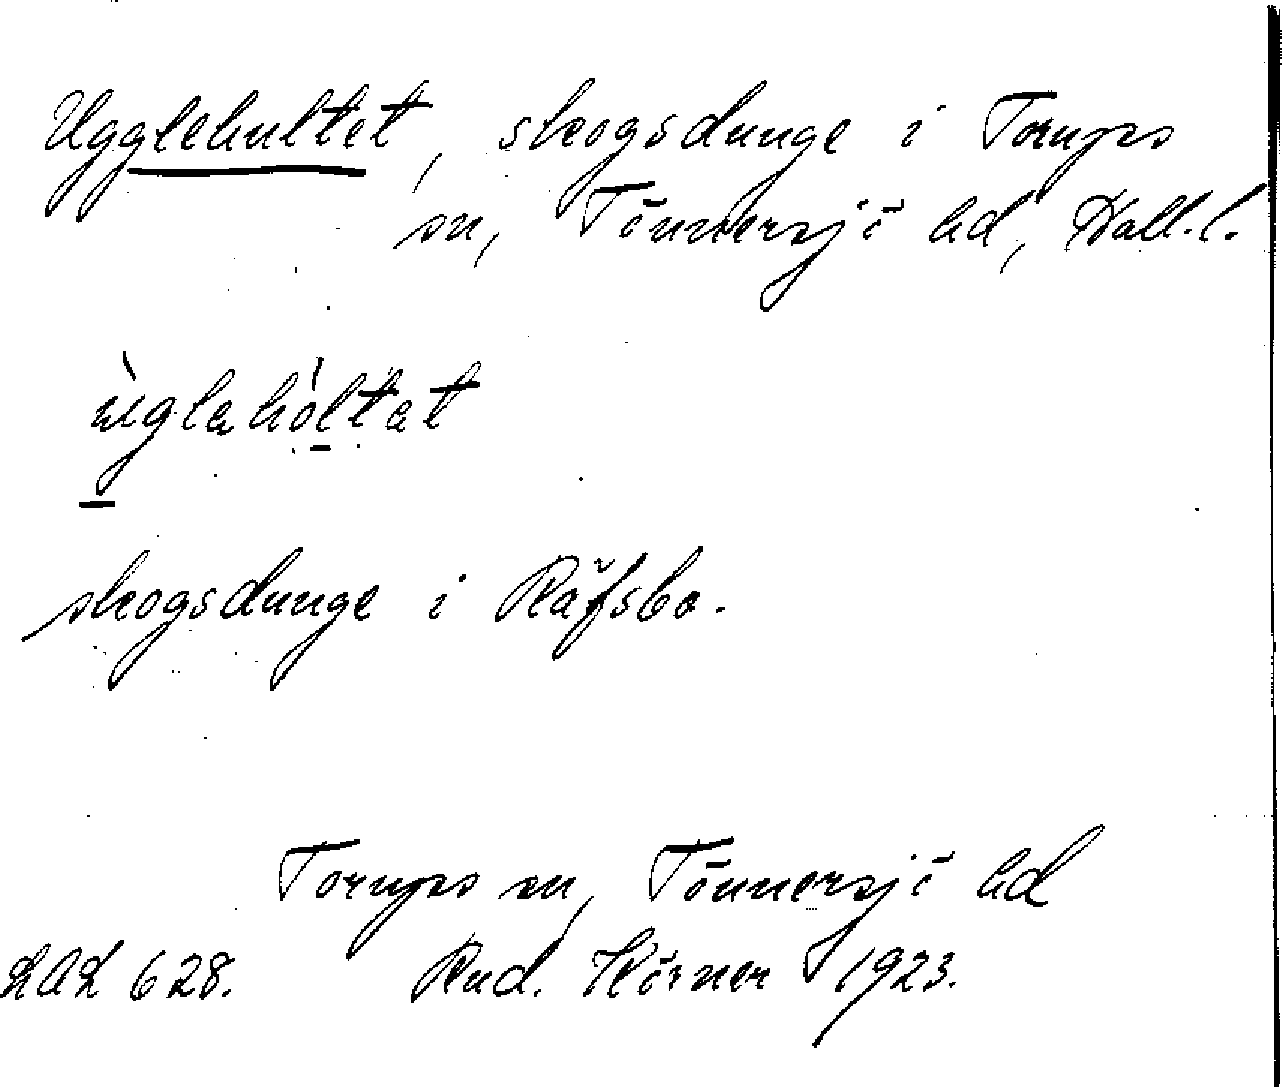 Ugglehultet, skogsdunge i Torups
sn, Tönnersjö hd, Hall.l.
ùglahóltat
skogsdunge i Räfsbo.
Torups sn, Tönnersjö hd
LAL 628. Rud. Körner 1923.